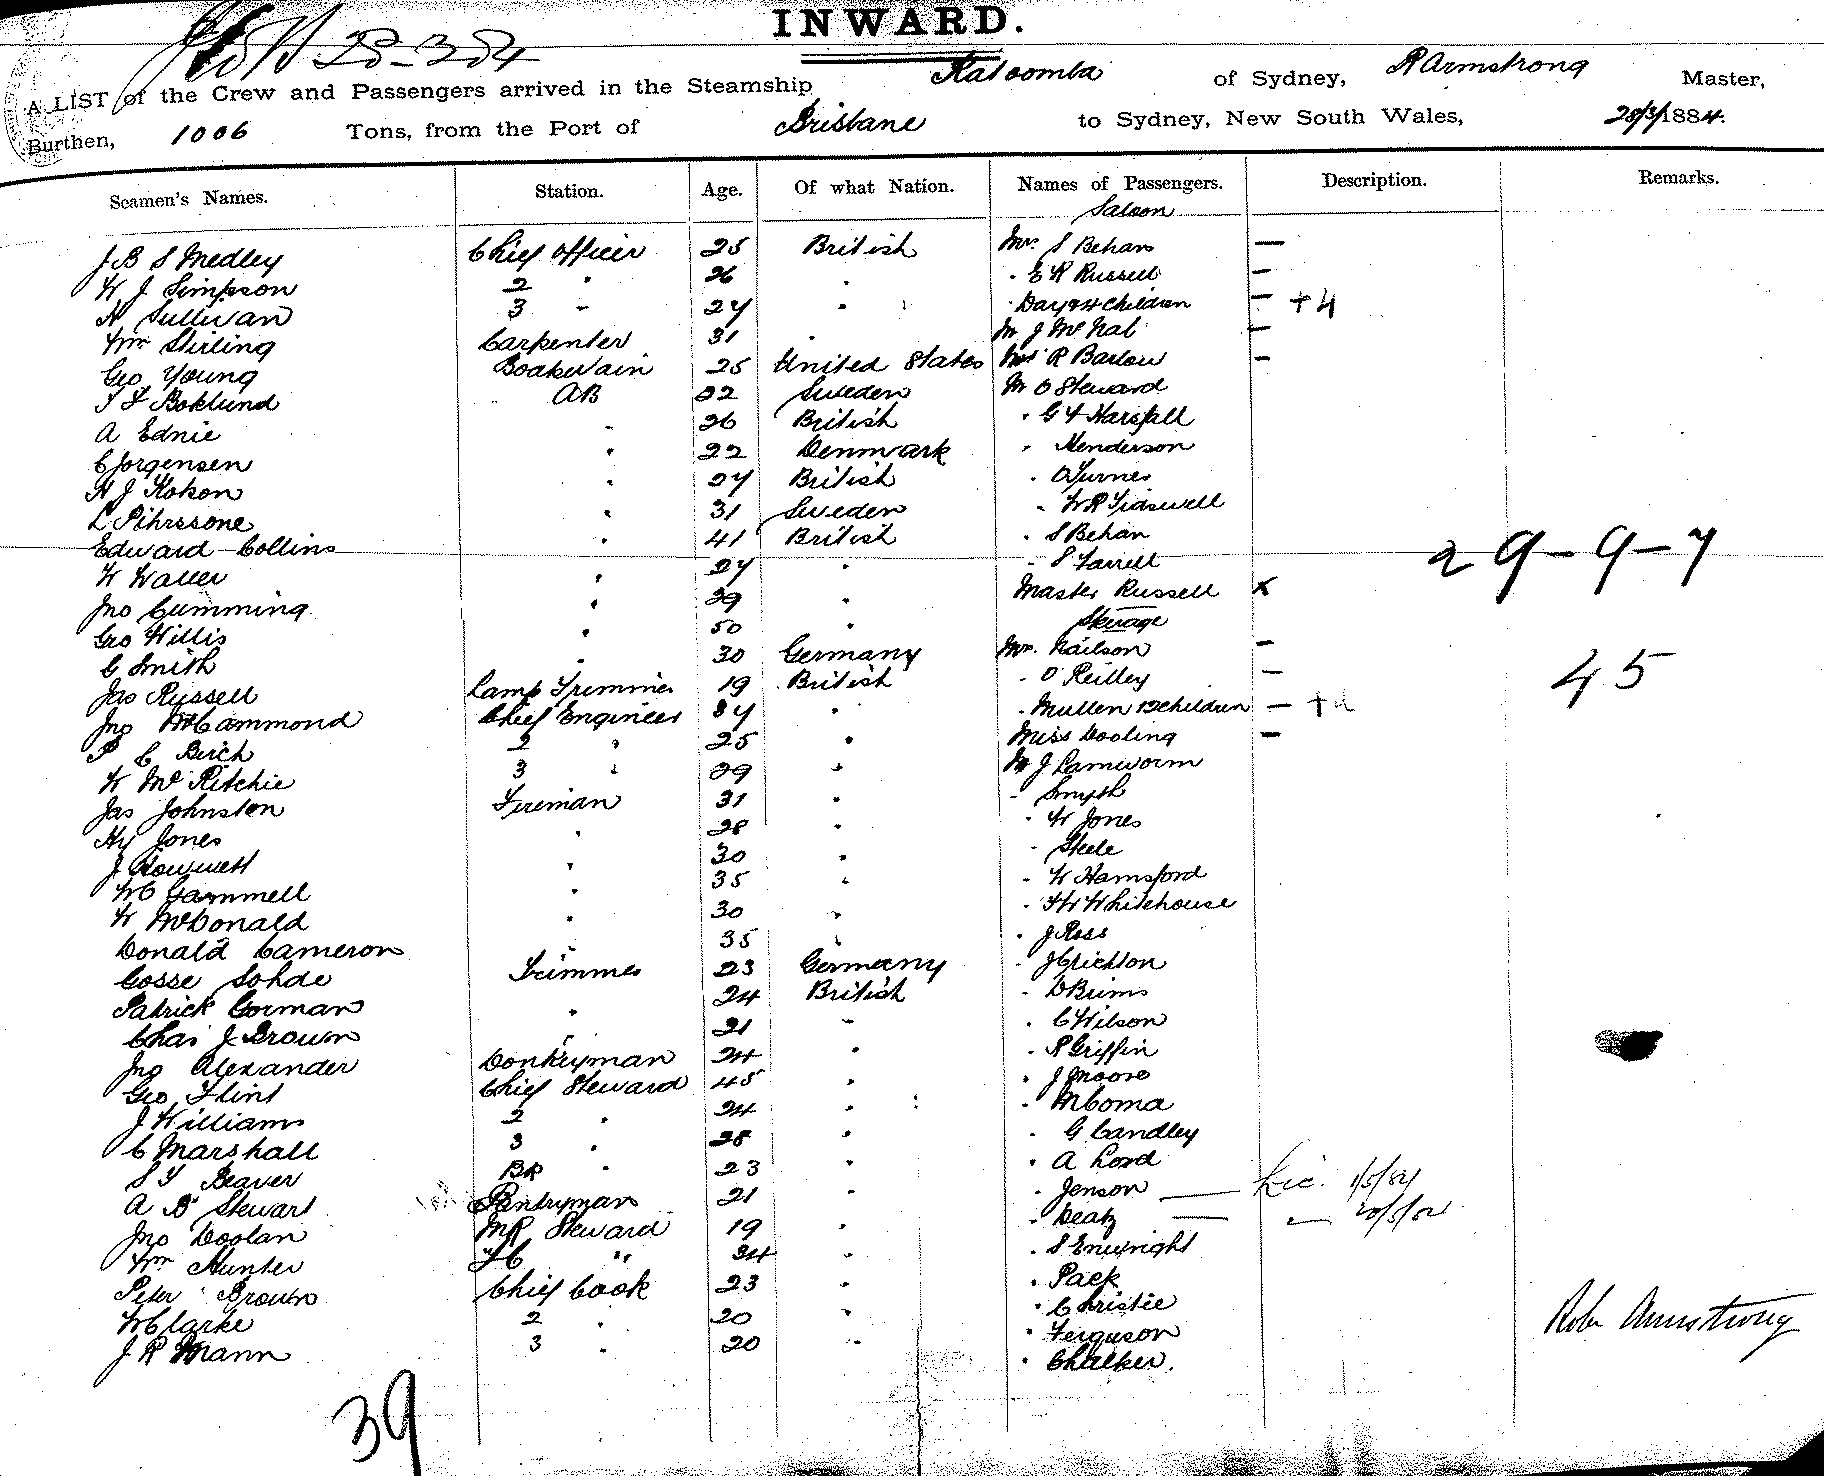 INWARD.
28-3-84
A LIST of the Crew and Passengers arrived in the Steamship Katoomba of Sydney, R Armstrong Master,
Burthen, 1006 Tons, from the Port of Brisbane to Sydney, New South Wales, 28/3/1884.
Seamen's Names. Station. Age. Of what Nation. Names of Passengers. Description. Remarks.
Saloon
J B S Medley Chief Officer 25 British Mrs. S Behan —
W J Simpson 2 " 26 " " E R Russell —
H Sullivan 3 " 27 " " Day & 4 Children — +4
Wm Stirling Carpenter 31 " M J McNab —
Geo Young Boatswain 25 United States Mrs R Barlow —
J F Boklund AB 22 Sweden Mr O Steward
A Ednie " 26 British " G F Harsfall
C Jorgensen " 22 Denmark " Henderson
H J Hobson " 27 British "
L Pihrssone " 31 Sweden " W R Tidswell
Edward Collins " 41 British " S Behan
W Waller " 27 " " S Farrell
Jno Cumming " 39 " Master Russell x
Geo Willis " 50 " Steerage
C Smith " 30 Germany Mrs. Nailson —
Jas Russell Lamp Trimmer 19 British " O'Reilley —
Jno McCammond Chief Engineer 34 " " Mullen & 2 Children — +2
P C Birch 2 " 25 " Miss Dooling —
W McRitchie 3 " 29 " Mr J Lamworm
Jas Johnston Fireman 31 " " Smyth
Hy Jones " 28 " " W Jones
J " 30 " " Steele
W C Gammell " 35 " " W Hamsford
W McDonald " 30 " " F W Whitehouse
Donald Cameron " 35 " " J Ross
Gosse Sohde Trimmer 23 Germany " J Crichton
Patrick Gorman " 24 British " D Bums
Chas J Brown " 21 " " C Wilson
Jno Alexander Donkeyman 24 " " R Griffin
Geo Flint Chief Steward 45 " " J Moore
J Williams 2 " 24 " " McComa
C Marshall 3 " 28 " " G Candley
S T Beaver BR " 23 " " A Lord
A B Stewart Pantryman 21 " " Jenson — Lic. 1/5/84
Jno Doolan MR Steward 19 " " Deatz — "
Wm Hunter FC " 34 " " S Enwright
Peter Brown Chief Cook 23 " " Pack
W Clarke 2 " 20 " " Christie
J R Mann 3 " 20 " " Ferguson
" Chalker.
29-9-7
45
Robt Armstrong
39